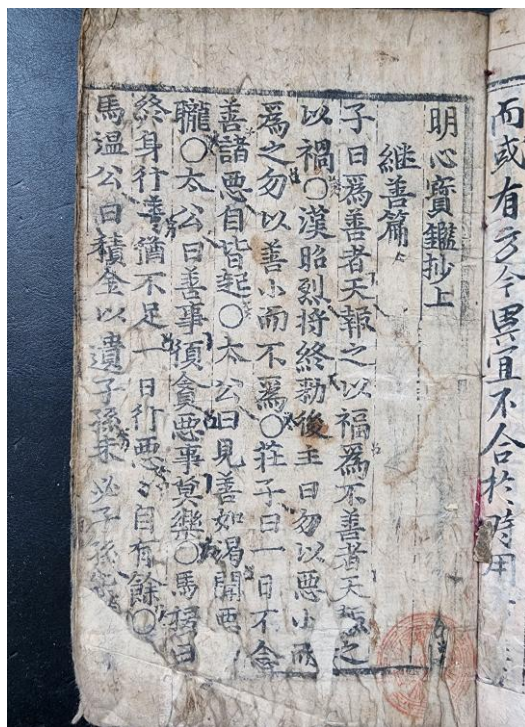 而或有方今異宜不合於時用
明心寶鑑抄上
継善篇
子曰爲善者天報之以福爲不善者天報之
以禍〇漢昭烈将終勅後主曰勿以惡小而
爲之勿以善小而不爲〇莊子曰一日不念
善諸惡自皆起〇太公曰見善如渴聞惡
聾〇太公曰善事須貪惡事莫樂〇馬援曰
終身行善猶不足一日行惡〻自有餘〇
馬温公曰積金以遺子孫未必子孫